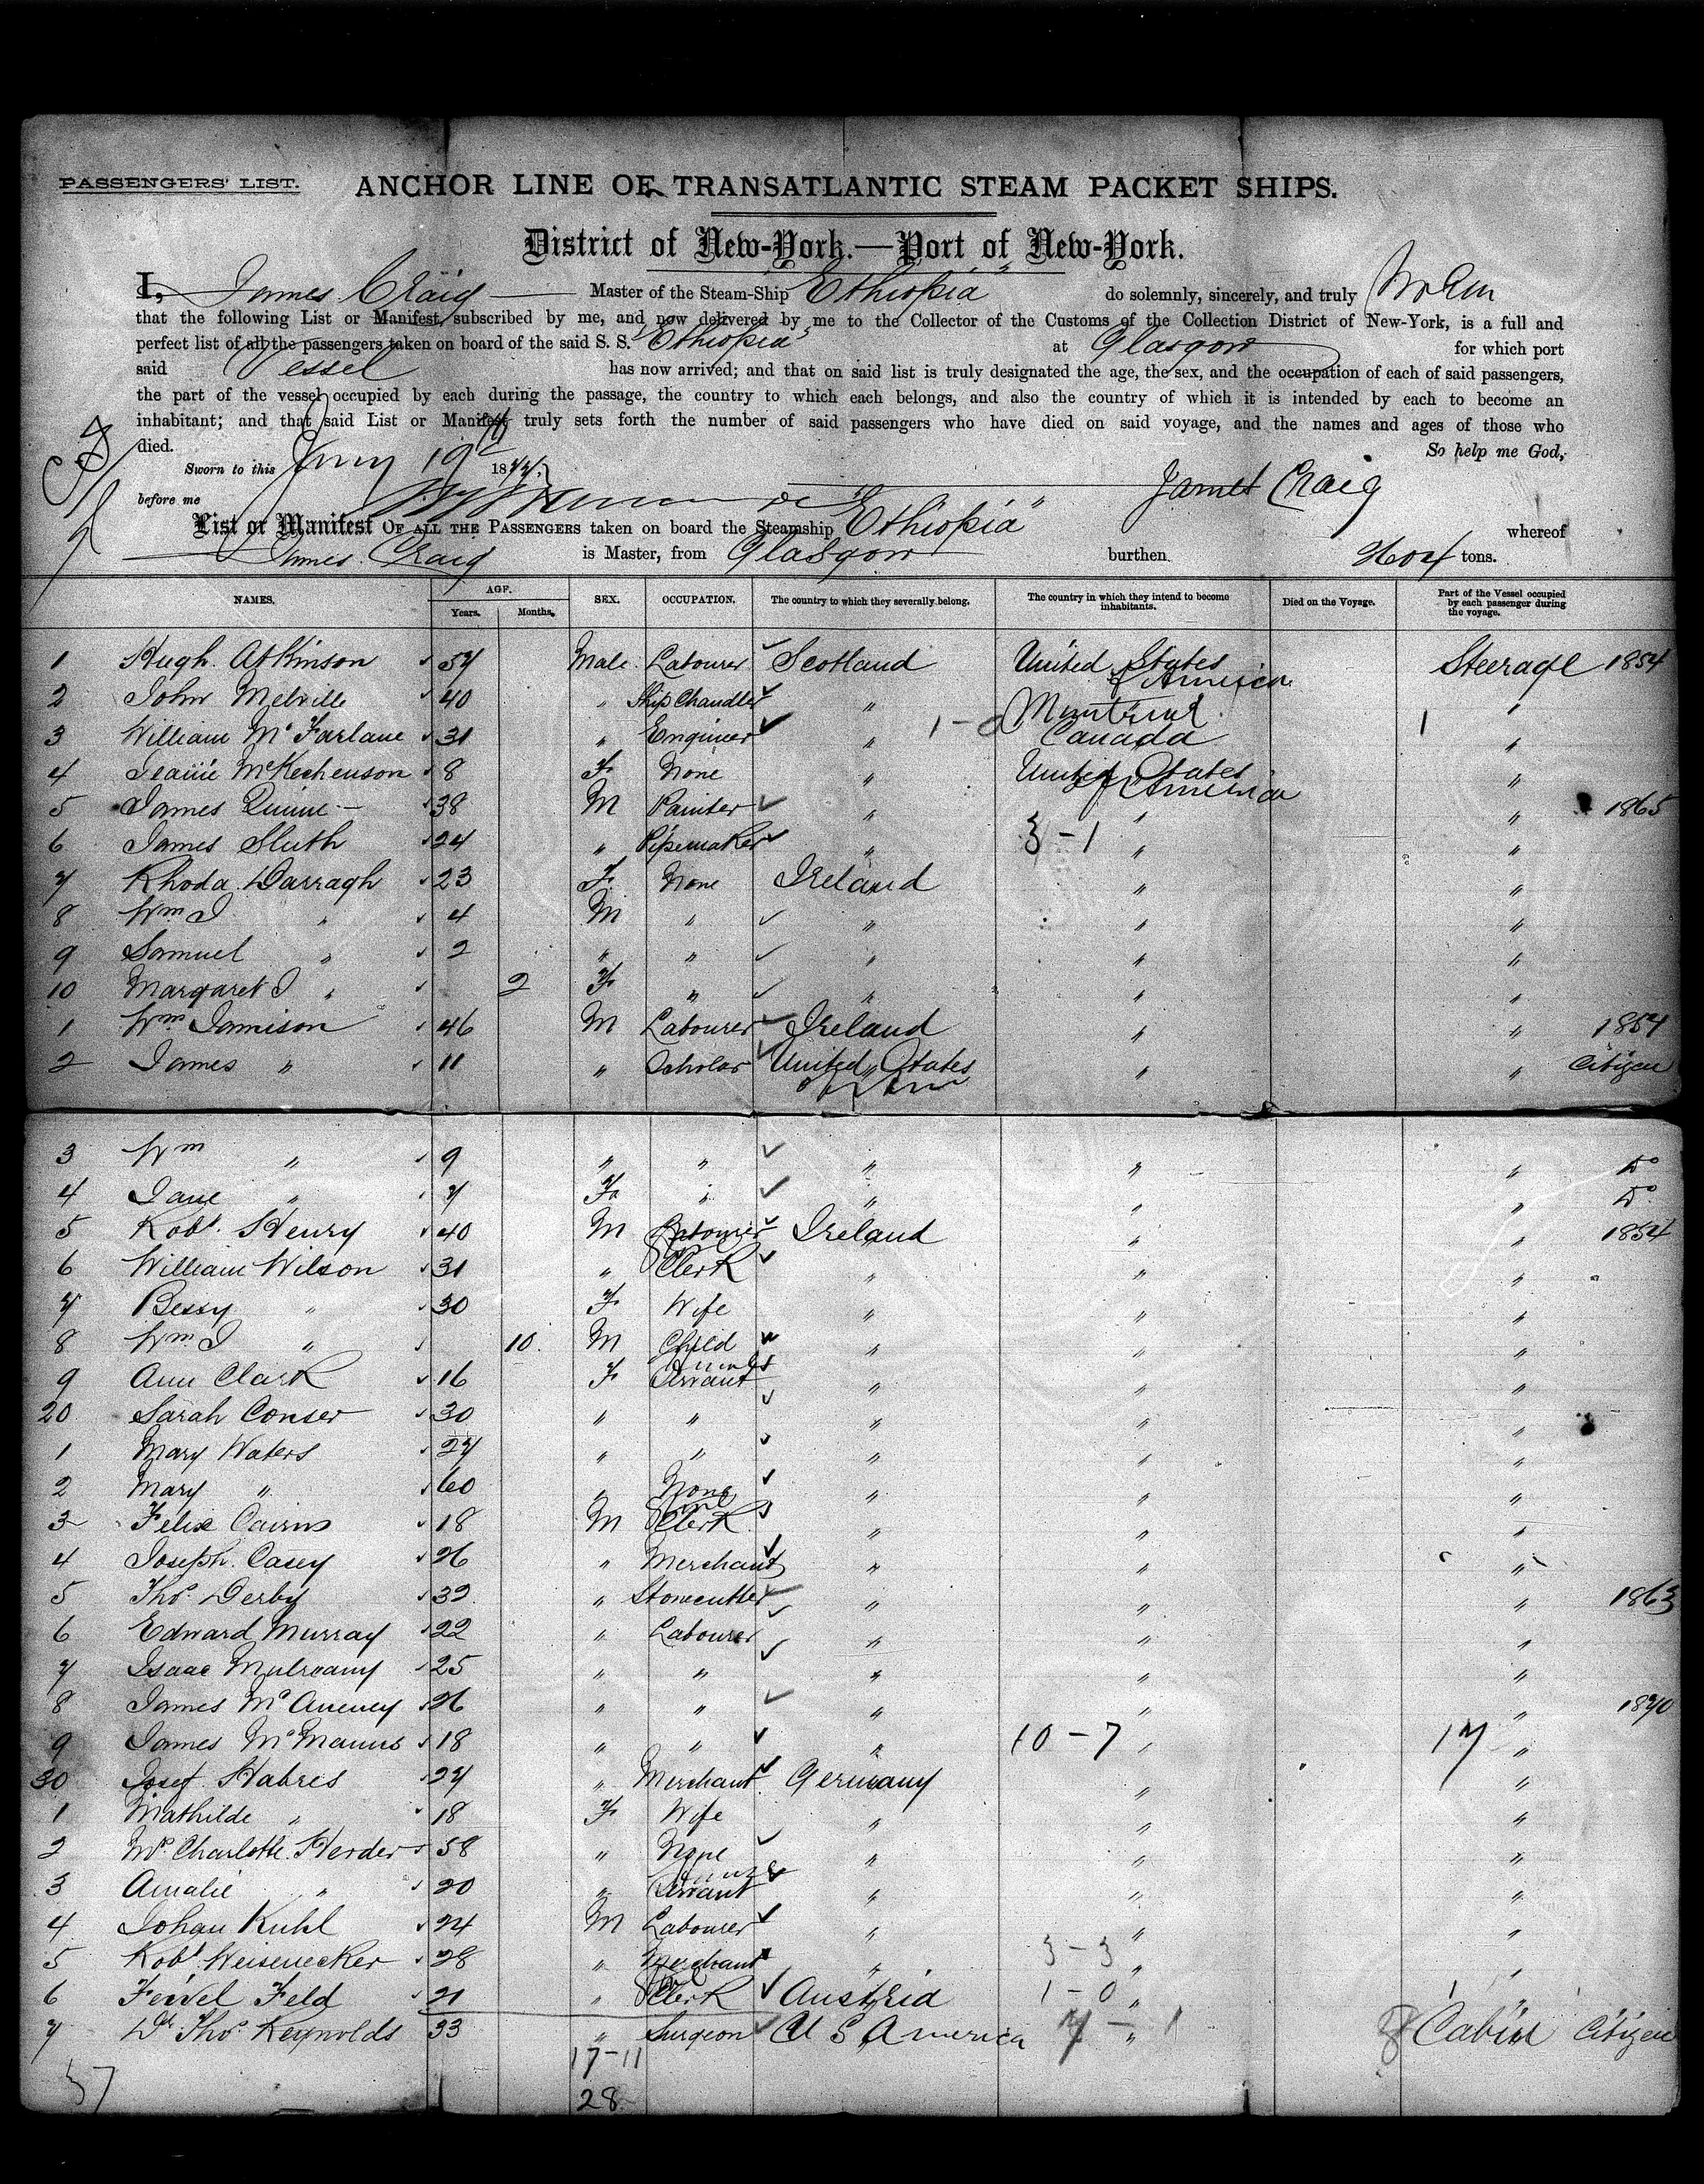 PASSENGERS' LIST.
ANCHOR LINE OF TRANSATLANTIC STEAM PACKET SHIPS.
District of New-York.—Port of New-York.
I, James Craig Master of the Steam-Ship "Ethiopia" do solemnly, sincerely, and truly
that the following List or Manifest, subscribed by me, and now delivered by me to the Collector of the Customs of the Collection District of New-York, is a full and
perfect list of all the passengers taken on board of the said S. S. "Ethiopia" at Glasgow for which port
said Vessel has now arrived; and that on said list is truly designated the age, the sex, and the occupation of each of said passengers,
the part of the vessel occupied by each during the passage, the country to which each belongs, and also the country of which it is intended by each to become an
inhabitant; and that said List or Manifest truly sets forth the number of said passengers who have died on said voyage, and the names and ages of those who
died. So help me God,
Sworn to this 19 18
before me James Craig
List or Manifest OF ALL THE PASSENGERS taken on board the Steamship "Ethiopia" whereof
James Craig is Master, from Glasgow burthen tons.
NAMES. AGE. Years. Months. SEX. OCCUPATION. The country to which they severally belong. The country in which they intend to become inhabitants. Died on the Voyage. Part of the Vessel occupied by each passenger during the voyage.
1 Hugh Atkinson 57 Male Labourer Scotland United States of America Steerage 1854
2 John Melville 40 " Ship Chandler " Montreal "
3 William McFarlane 31 " Engineer " 1-0 Canada 1 "
4 Jeanie McKechenson 8 F None " United States of America "
5 James Quinn 38 M Painter " " " 1865
6 James Sluth 24 " Pipemaker " 3-1 " "
7 Rhoda Darragh 23 F None Ireland " "
8 Wm J " 4 M " " " "
9 Samuel " 2 " " " " "
10 Margaret J " 2 F " " " "
1 Wm Jamison 46 M Labourer Ireland " " 1854
2 James " 11 " Scholar United States of Am " " Citizen
3 Wm " 9 " " " " " Do
4 Jane " 7 F " " " " Do
5 Robt Henry 40 M Labourer Ireland " " 1854
6 William Wilson 31 " Clerk " " "
7 Bessy " 30 F Wife " " "
8 Wm J " 10 M Child " " "
9 Ann Clark 16 F Servant " " "
20 Sarah Conser 30 " " " " "
1 Mary Waters 27 " " " " "
2 Mary " 60 " None " " "
3 Felix Cairns 18 M Clerk " " "
4 Joseph Casey 26 " Merchant " " "
5 Thos Derby 32 " Stonecutter " " " 1863
6 Edward Murray 22 " Labourer " " "
7 Isaac Mulreany 25 " " " " "
8 James McAneney 26 " " " " " 1870
9 James McManus 18 " " " 10-7 " 17 "
30 Josef Habres 27 " Merchant Germany " "
1 Mathilde " 18 F Wife " " "
2 Mrs Charlotte Herder 58 " None " " "
3 Amalie " 20 " Servant " " "
4 Johan Kuhl 24 M Labourer " " "
5 Robt Weisenecker 28 " Merchant " 3-3 " "
6 Feivel Feld 21 " Clerk Austria 1-0 " "
7 Dr Thos Reynolds 33 " Surgeon U S America 7-1 " 8 Cabin Citizen
37 17-11
28